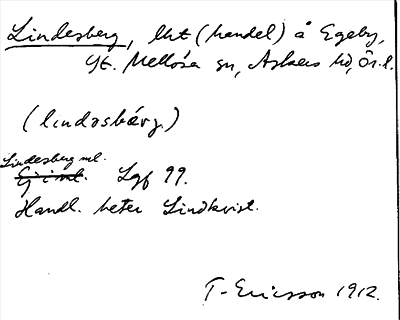 Lindesberg, lht (handel) å Egeby,
Yt. Mellösa sn, Askers hd, Ör. l.
(lındəsbärg.)
Lindesberg ml.
Ej i ml. Lgf 99.
Handl. heter Lindkvist.
T. Ericsson 1912.